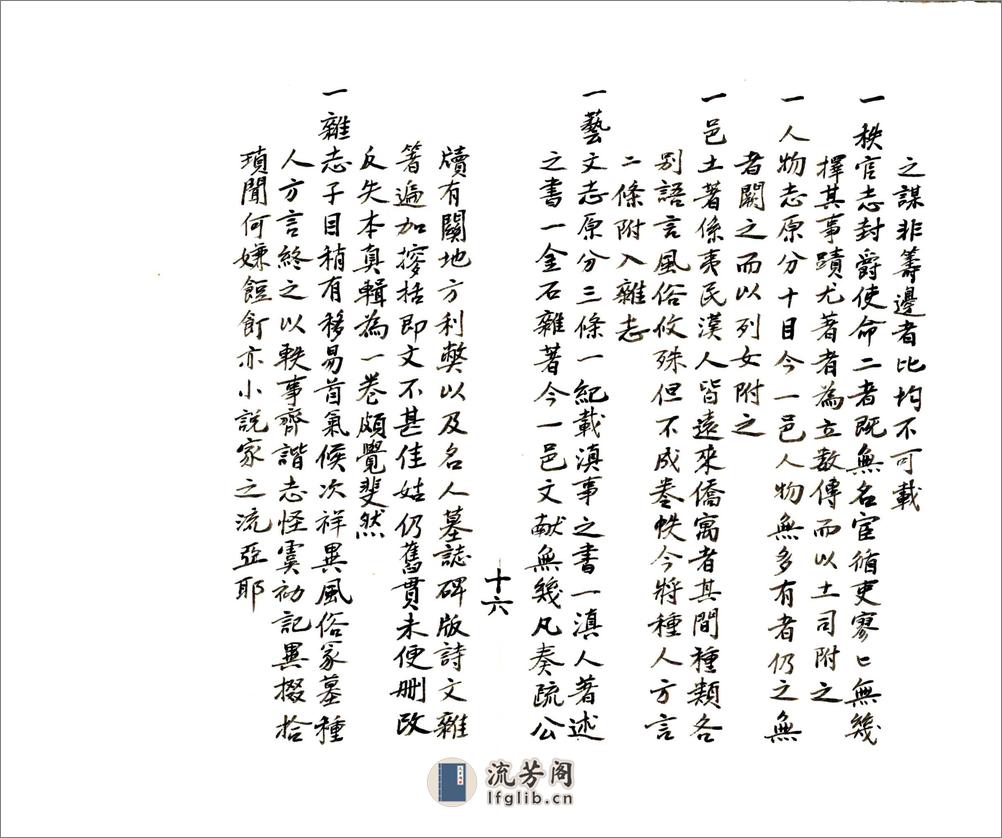 之謀非籌邊者比均不可載
一秩官志封爵使命二者既無名宦循吏寥匕無幾
擇其事蹟尤著者為立数傳而以土司附之
一人物志原分十目今一邑人物無多有者仍之無
者闕之而以列女附之
一邑土著係夷民漢人皆遠來僑寓者其間種類各
别語言風俗攸殊但不成卷帙今將種人方言
二條附入雜志
一藝文志原分三條一紀載滇事之書一滇人著述
之書一金石雜著今一邑文献無幾凡奏疏公
十六
牘有關地方利弊以及名人墓誌碑版詩文雜
著遍加搜括即文不甚佳姑仍舊貫未便删改
反失本真輯為一卷頗覺斐然
一雜志子目稍有移易首氣候次祥異風俗冢墓種
人方言終之以軼事齊諧志怪虞初記異掇拾
瑣聞何嫌餖飣亦小説家之流亞耶
流芳阁
lfglib.cn